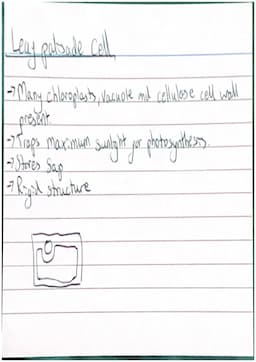 Leaf palisade Cell
→ Many chloroplasts, vacuole and cellulose cell wall
present.
→ Traps maximum sunlight for photosynthesis.
→ Stores Sap
→ Rigid structure